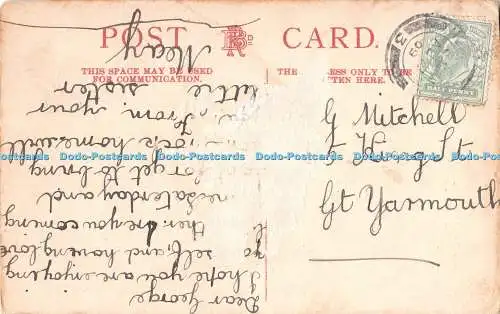 POST CARD.
THIS SPACE MAY BE USED
FOR COMMUNICATION.
THE ESS ONLY TO BE
TEN HERE.
HALF PENNY
G Mitchell
5 King St
Gt Yarmouth
Dear George
I hope you are enjoying
yo self, and having love
ther. Are you coming
me Saturday and
or get to bring
home. will
From your
little sister
Mary
Dodo-Postcards Dodo-Postcards Dodo-Postcards Dodo-Postcards Dodo-Postcards Dodo-Postcards Dodo-Postcards